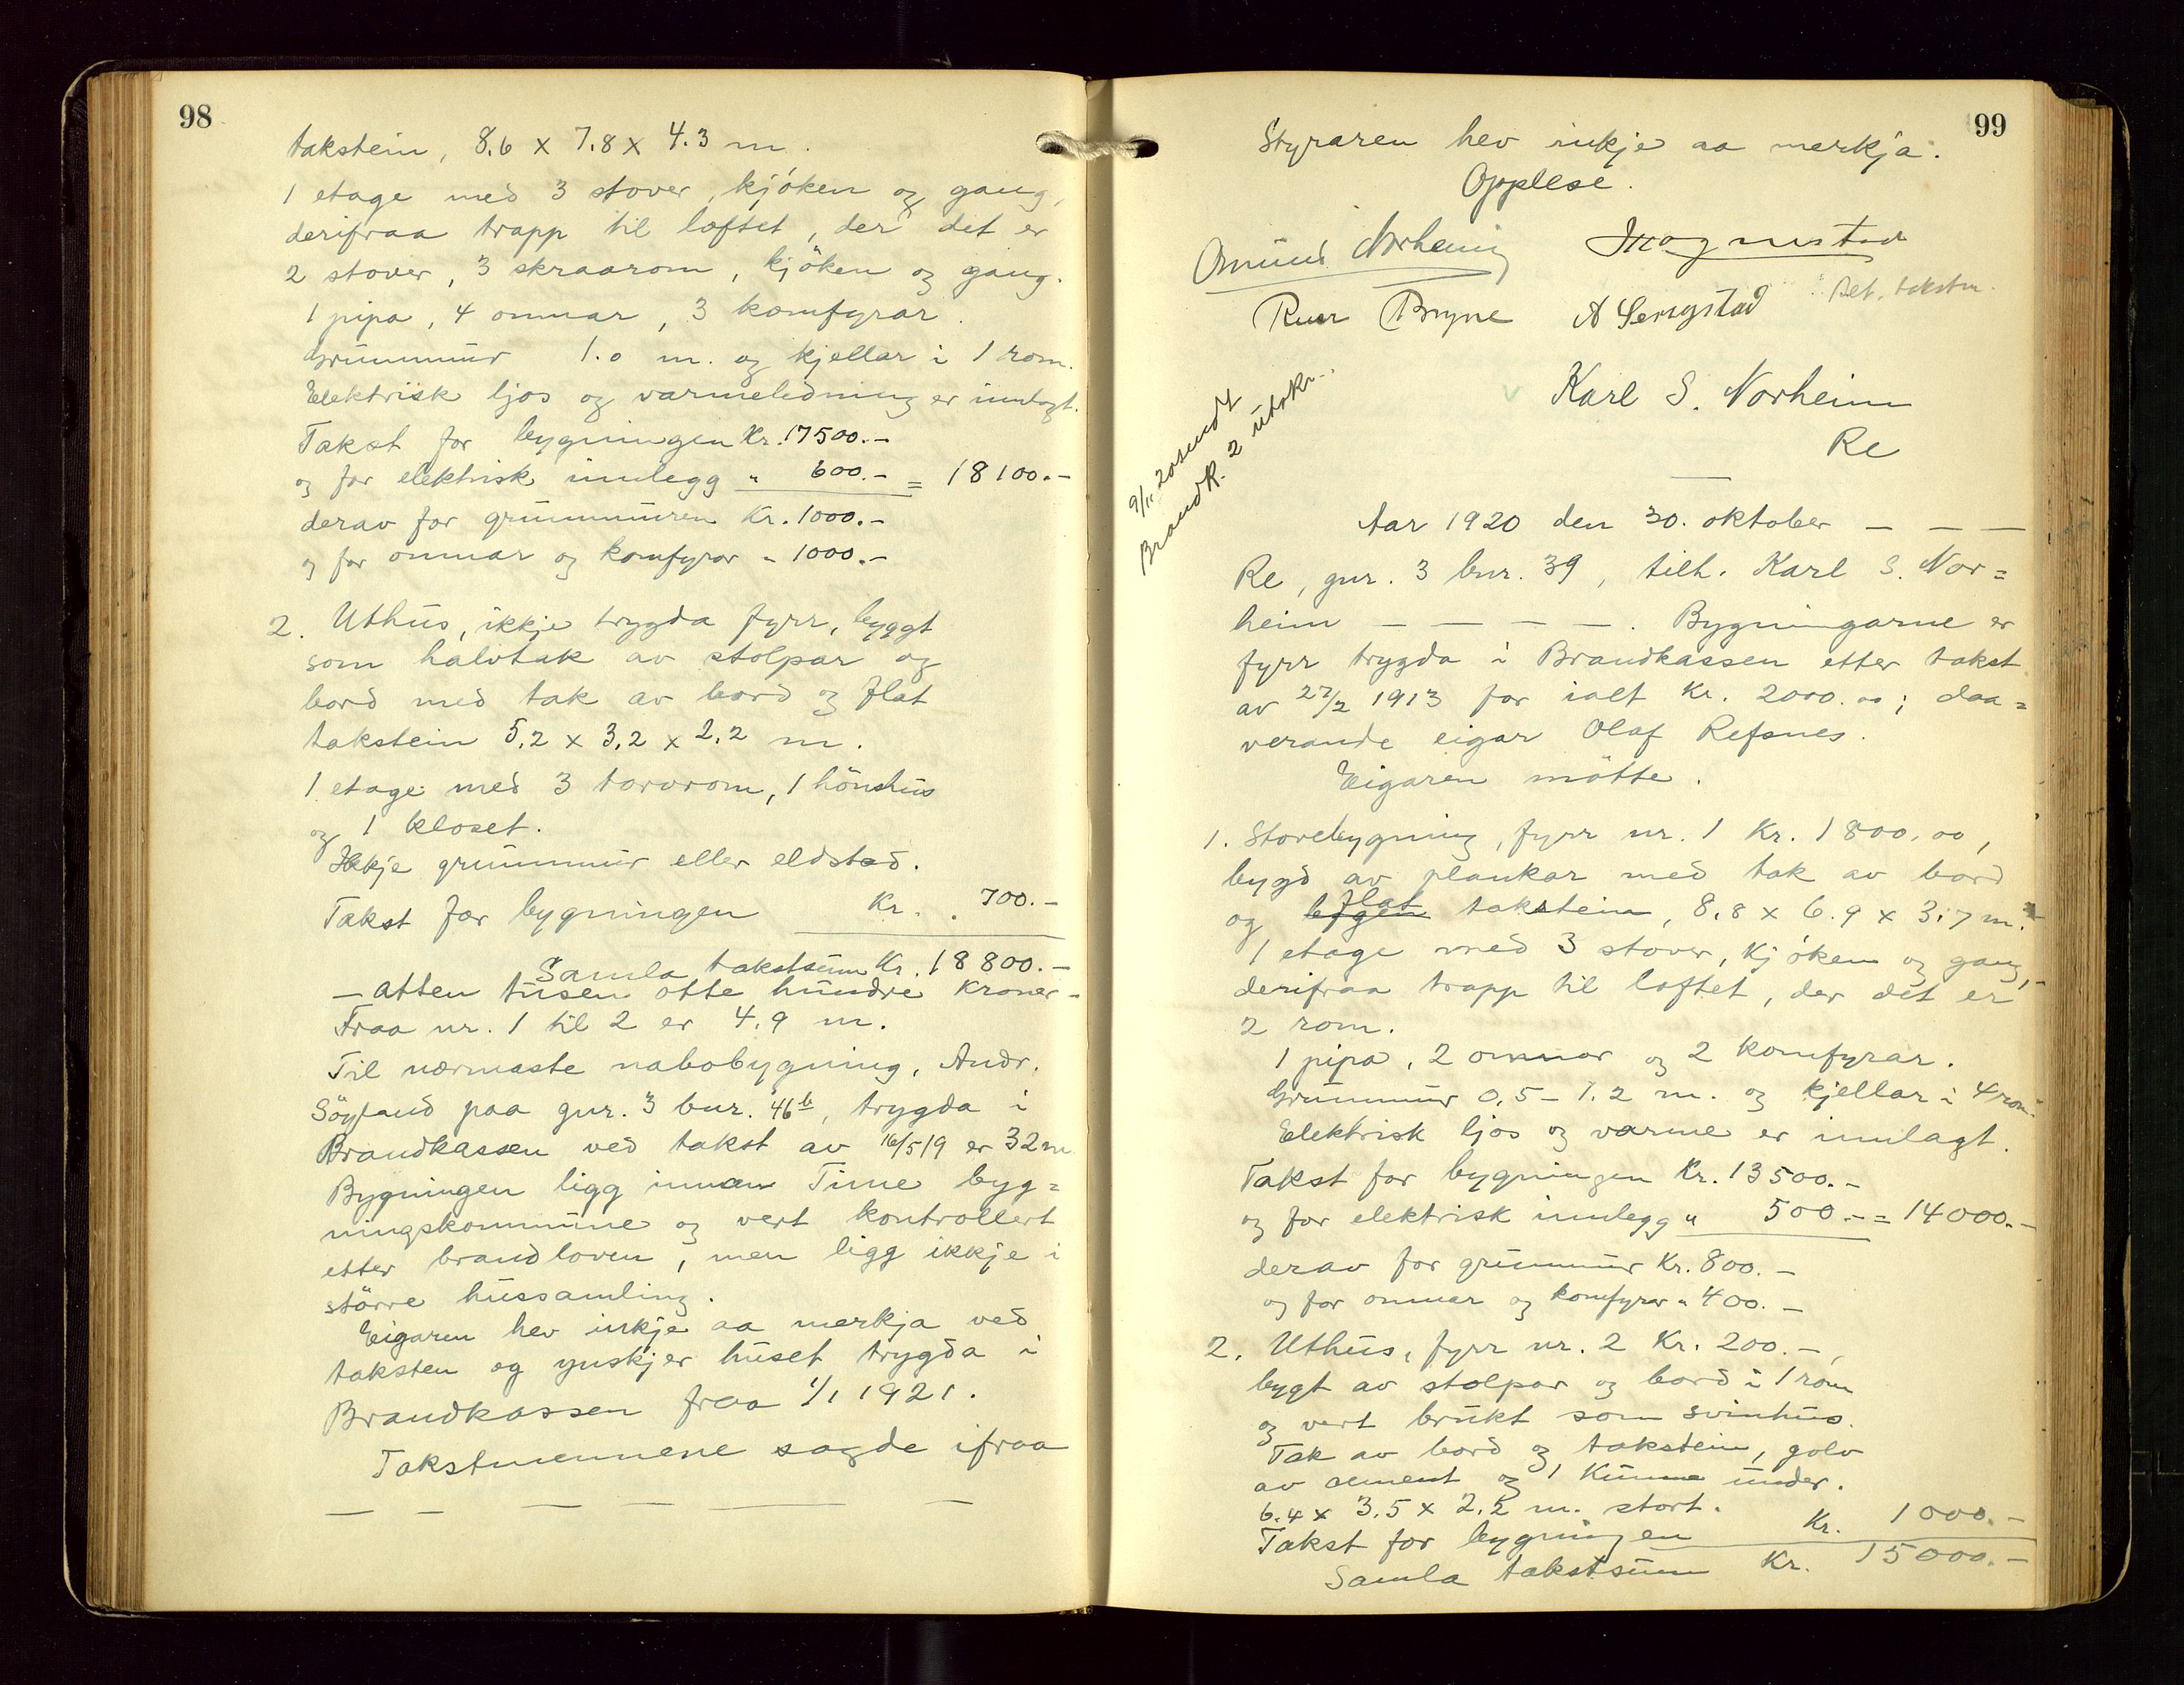 98
takstein, 8.6 x 7.8 x 4.3 m.
1 etage med 3 stover, kjöken og gang,
derifraa trapp til loftet, der det er
2 stover, 3 skraarom, kjöken og gang.
1 pipa, 4 omnar, 3 komfyrar.
Grunnmur 1.0 m. og kjellar i 1 rom.
Elektrisk ljos og varmeledning er innlagt.
Takst for bygningen Kr. 17500.-
og for elektrisk innlegg " 600.- = 18100.-
derav for grunnmuren Kr. 1000.-
og for omnar og komfyrar " 1000.-
2. Uthus, ikkje trygda fyrr, byggt
som halvtak av stolpar og
bord med tak av bord og flat
takstein 5,2 x 3,2 x 2,2 m.
1 etage med 3 torvrom, 1 hönshus
og 1 kloset.
Ikkje grunnmur eller eldstad.
Takst for bygningen Kr. 700.-
Samla takstsum Kr. 18800.-
- atten tusen otte hundre kroner -
Fraa nr. 1 til 2 er 4,9 m.
Til nærmaste nabobygning, Andr.
Söyland paa gnr. 3 bnr. 46b, trygda i
Brandkassen ved takst av 16/5 19 er 32 m
Bygningen ligg innan Time byg=
ningskommune og vert kontrollert
etter brandloven, men ligg ikkje i
större hussamling.
Eigaren hev inkje aa merkja ved
taksten og ynskjer huset trygda i
Brandkassen fraa 1/1 1921.
Takstmennene sagde ifraa
99
Styraren hev inkje aa merkja.
Opplese.
Omund Norheim Magnustad
Reer Bryne A Serigstad
Karl S. Norheim
Re
9/11 20 sendt
Brandk. 2 utskr.
Aar 1920 den 30. oktober - - -
Re, gnr. 3 bnr. 39, tilh. Karl S. Nor=
heim - - - -. Bygningarne er
fyrr trygda i Brandkassen etter takst
av 27/2 1913 for ialt Kr. 2000.00; daa=
verande eigar Olaf Refsnes.
Eigaren mötte.
1. Stovebygning, fyrr nr. 1 Kr. 1800,00,
bygd av plankar med tak av bord
og flat takstein, 8,8 x 6.9 x 3,7 m.
1 etage med 3 stover, kjöken og gang,
derifraa trapp til loftet, der det er
2 rom.
1 pipa, 2 omnar og 2 komfyrar.
Grunnmur 0,5 - 1.2 m. og kjellar i 4 rom.
Elektrisk ljos og varme er innlagt.
Takst for bygningen Kr. 13500.-
og for elektrisk innlegg " 500.- = 14000.-
derav for grunnmur Kr. 800.-
og for omnar og komfyrar " 400.-
2. Uthus, fyrr nr. 2 Kr. 200.-,
bygt av stolpar og bord i 1 rom
og vert brukt som svinhus.
Tak av bord og takstein, golv
av cement og 1 kumme under.
6.4 x 3.5 x 2,2 m. stort.
Takst for bygningen Kr. 1000.-
Samla takstsum Kr. 15000.-